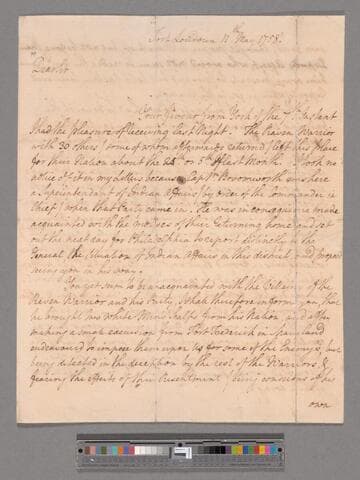 Fort Loudoun 11th May 1758.
Dear Sir
Your favour from York of the 7th Instant
I had the pleasure of receiving last Night. The Raven Warrior
with 30 others (some of whom afterwards returned) left this place
for their Nation about the of last Month. I took no
notice of it in my letters because Capt. Bosomworth was here
a Superintendant of Indian Affairs (by order of the Commander in
Chief) when that Party came in. He was in consequence made
acquainted with the motives of their returning home and set
out the next day for Philadelphia to report distinctly to the
General the Situation of Indian Affairs in this district and
seeing you in his way.
You yet seem to be unacquainted with the Villainy of the
Raven Warrior and his Party, I shall therefore inform you, that
he brought two white Mens Scalps from his Nation and after
making a small excursion from Fort Frederick in Maryland
endeavoured to impose them upon us for some of the Enemy's, but
being detected in the deception by the rest of the Warriors &
fearing the effects of their Resentment (being conscious of his
own